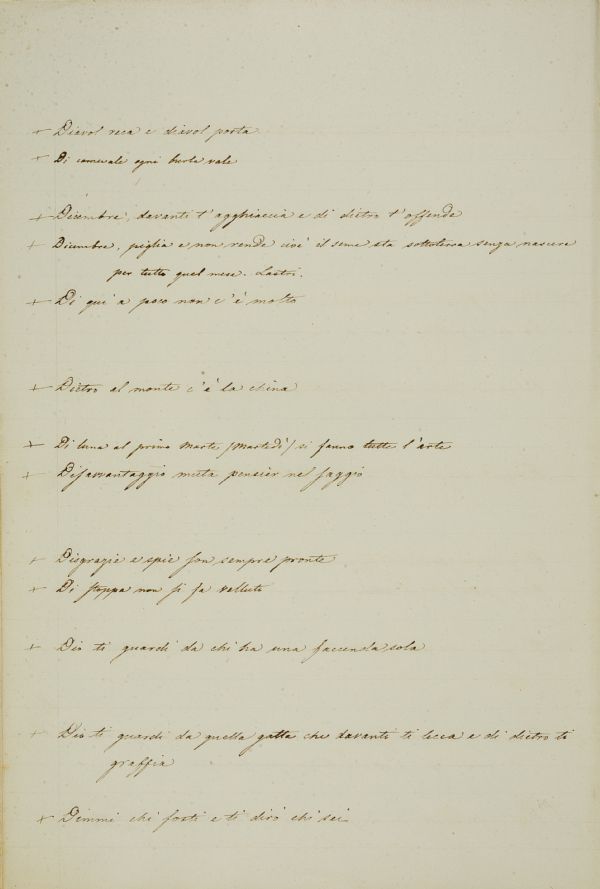 + Diavol reca e diavol porta
+ Di carnevale ogni burla vale
+ Dicembre, davanti t'agghiaccia e di dietro t'offende
+ Dicembre, piglia e non rende cioè il seme sta sottoterra senza nascere
per tutto quel mese. Lastri.
+ Di qui a poco non c'è molto
+ Dietro al monte c'è la china
+ Di luna al primo Marte /Martedì/ si fanno tutte l'arte
+ Disavvantaggio muta pensièr nel saggio
+ Disgrazie e spie son sempre pronte
+ Di stoppa non si fa velluto
+ Dio ti guardi da chi ha una faccenda sola
+ Dio ti guardi da quella gatta che davanti ti lecca e di dietro ti
graffia
+ Dimmi chi fosti e ti dirò chi sei